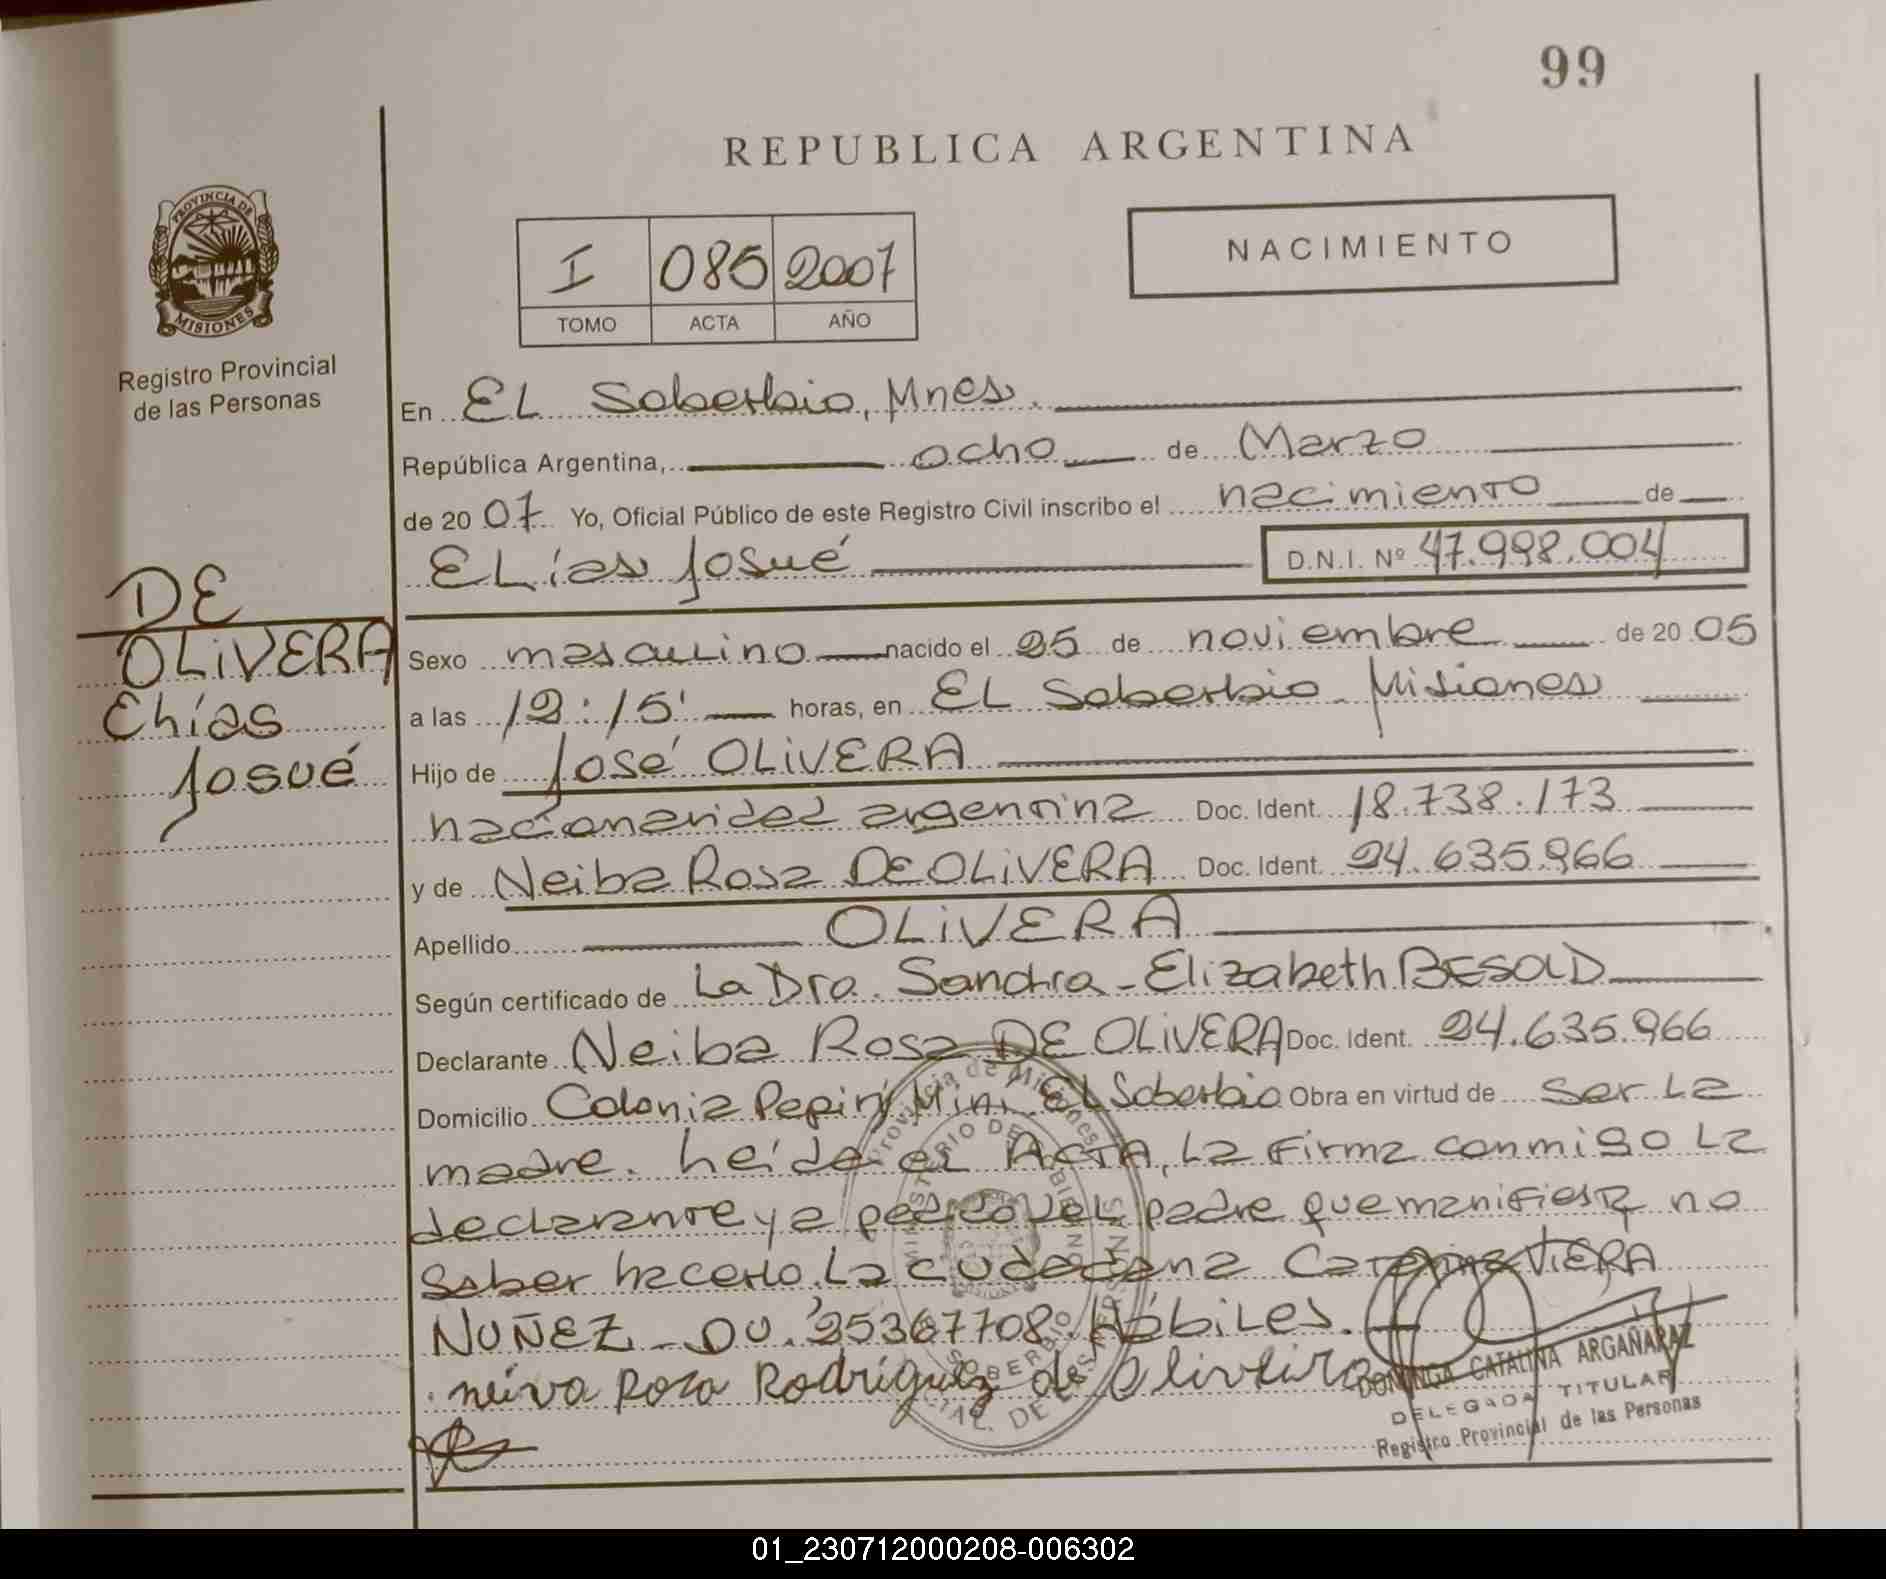 99
REPUBLICA ARGENTINA
PROVINCIA DE
MISIONES
Registro Provincial
de las Personas
I 085 2007
TOMO ACTA AÑO
NACIMIENTO
En EL Soberbio, Mnes.
República Argentina, ocho de Marzo
de 20 07 Yo, Oficial Público de este Registro Civil inscribo el nacimiento de
ELías Josué D.N.I. Nº 47.998.004
DE
OLiVERA
Elías
Josué
Sexo masculino nacido el 25 de noviembre de 20 05
a las 12:15' horas, en EL Soberbio - Misiones
Hijo de José OLiVERA
nacionalidad argentina Doc. Ident. 18.738.173
y de Neiba Rosa DE OLiVERA Doc. Ident. 24.635.966
Apellido OLiVERA
Según certificado de La Dra. Sandra - Elizabeth BESOLD
Declarante Neiba Rosa DE OLiVERA Doc. Ident. 24.635.966
Domicilio Colonia Pepirí Miní EL Soberbio Obra en virtud de ser La
madre. Leída el ACTA, La Firma conmigo La
declarante y a pedido del padre que manifiesta no
saber hacerlo, La ciudadana Catalina VIERA
NUÑEZ - DU. 25367708. Hábiles.
neiva Rosa Rodriguez de oliveira
Provincia de Misiones
MINISTERIO DE GOBIERNO
EL SOBERBIO
DOMINGA CATALINA ARGAÑARAZ
DELEGADA TITULAR
Registro Provincial de las Personas
01_230712000208-006302